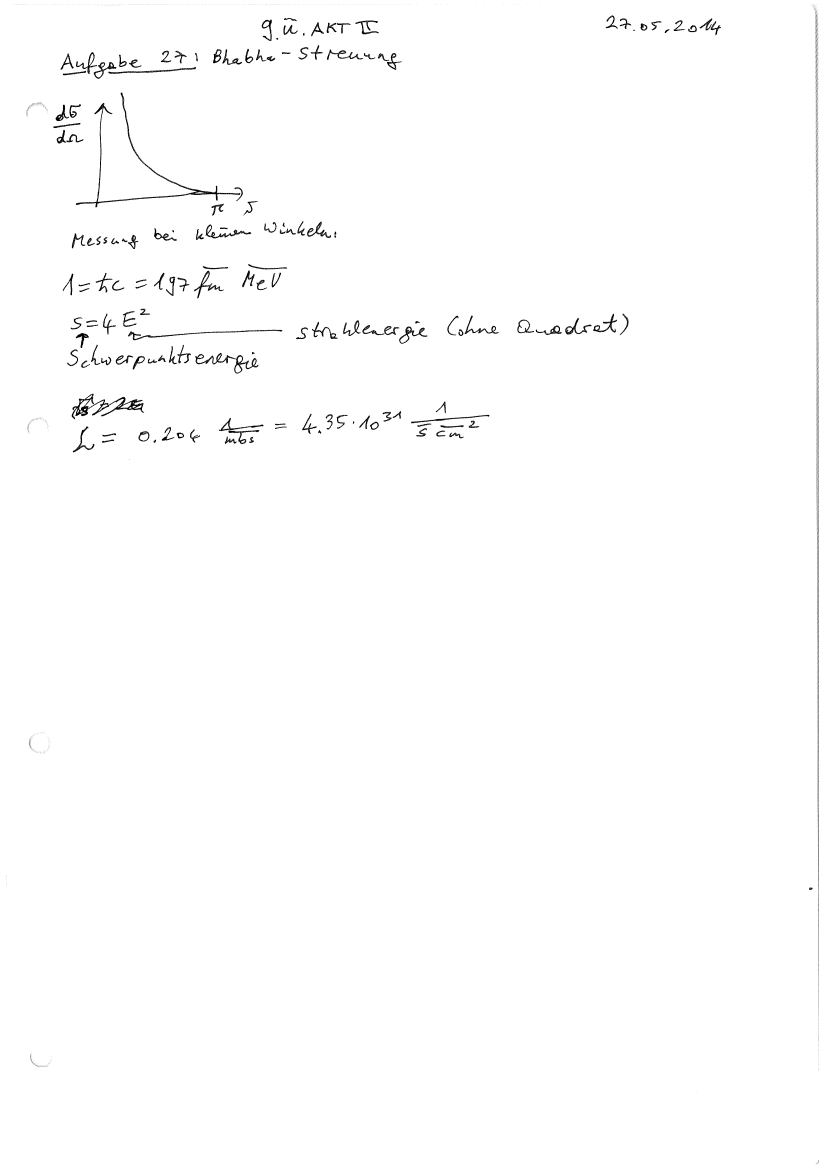 9. Ü. AKT II
27.05.2014
Aufgabe 27: Bhabha-Streuung
dσ/dΩ
π ϑ
Messung bei kleinen Winkeln.
1 = ħc = 197 fm MeV
s = 4 E² Strahlenergie (ohne Quadrat)
↑
Schwerpunktsenergie
L = 0.204 1/mbs = 4.35 · 10³¹ 1/(s cm²)